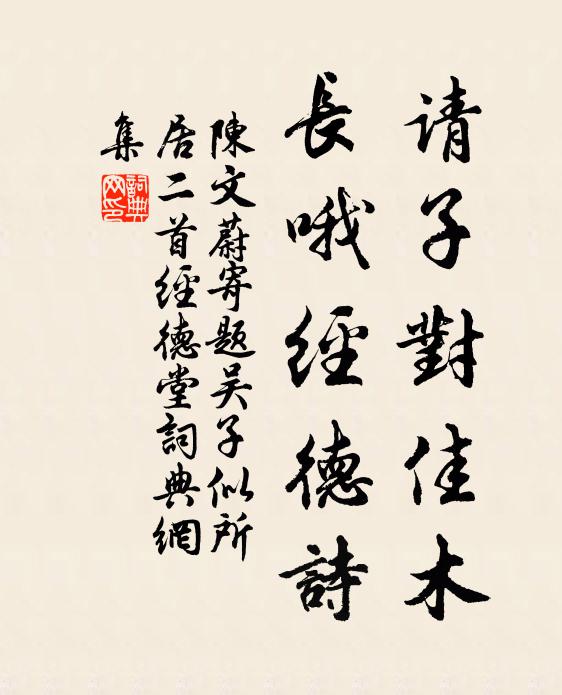 请子對佳木
長哦經德詩
陳文蔚寄題吴子似所
居二首經德堂詞典網
集
詞典
网印